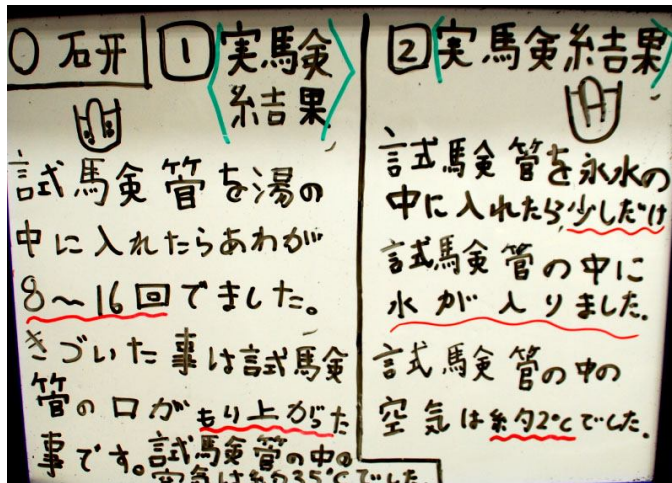 〇 石研
1 〈実験
結果〉
試験管を湯の
中に入れたらあわが
8～16回でました。
きづいた事は試験
管の口がもり上がった
事です。試験管の中の
空気は約35℃でした。
2 〈実験結果〉
試験管を氷水の
中に入れたら、少しだけ
試験管の中に
水が入りました。
試験管の中の
空気は約2℃でした。